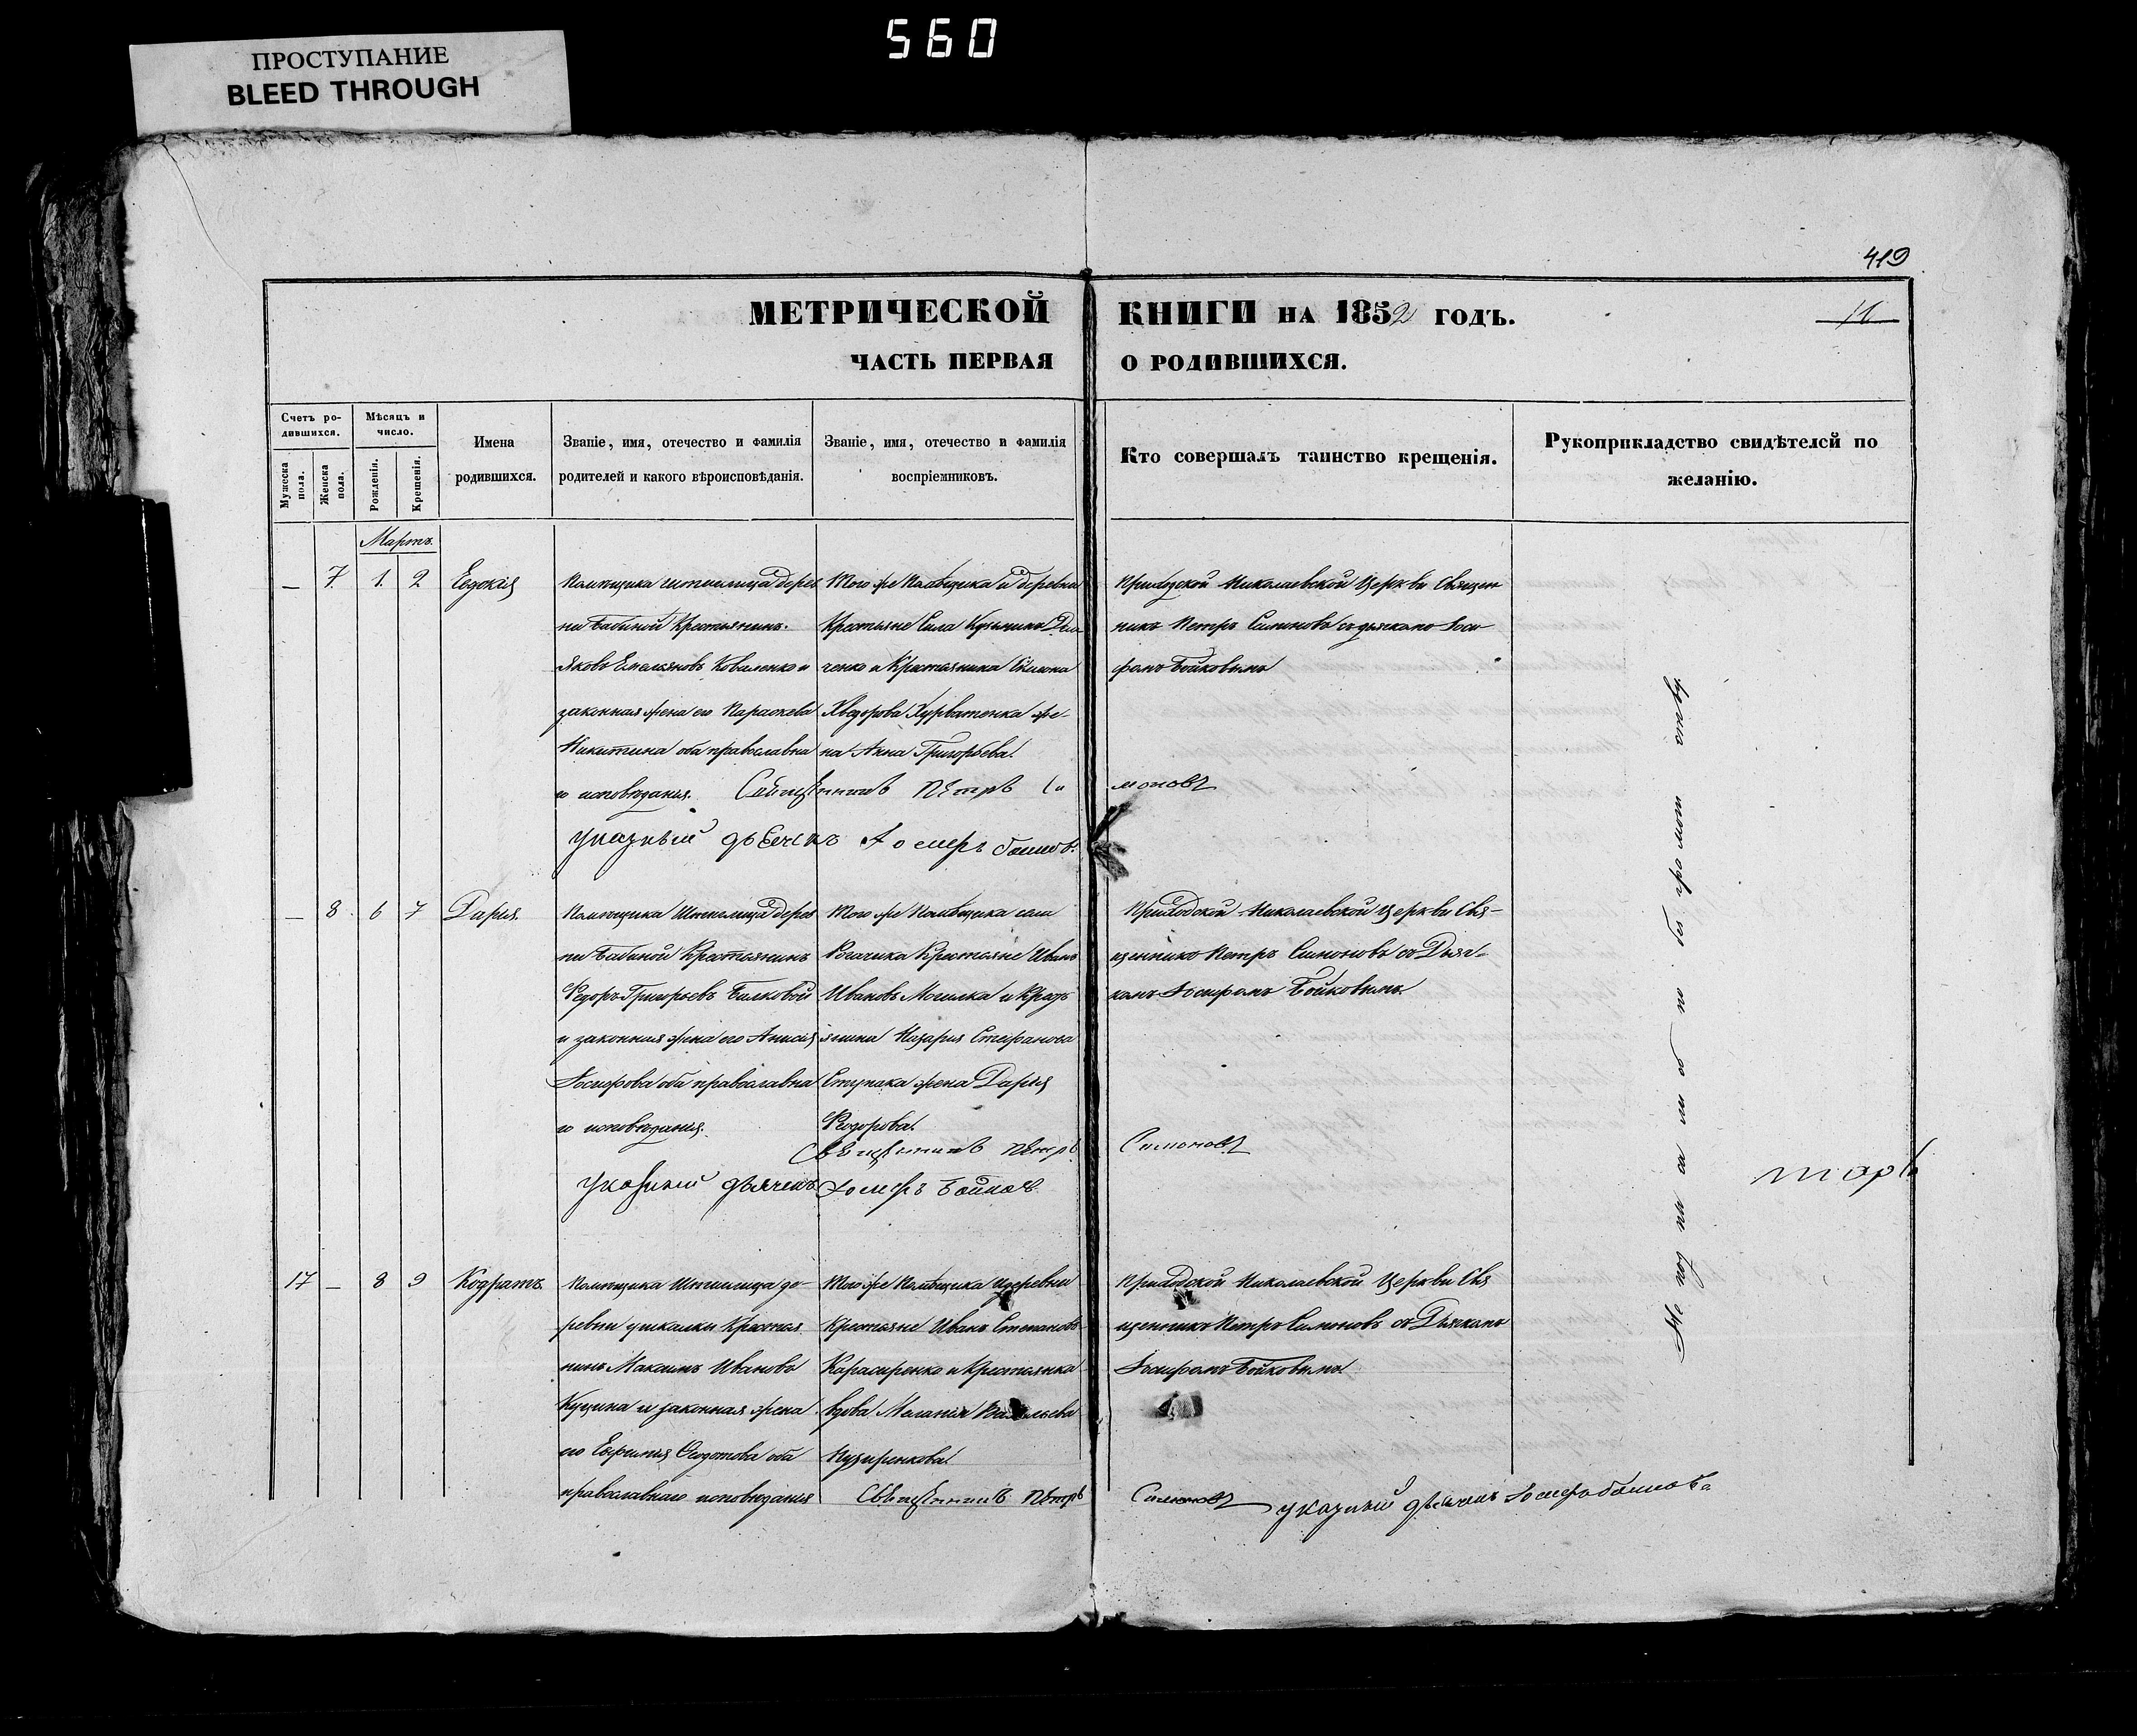 560
ПРОСТУПАНИЕ
BLEED THROUGH
419
МЕТРИЧЕСКОЙ КНИГИ НА 1852 ГОДЪ.
11
ЧАСТЬ ПЕРВАЯ О РОДИВШИХСЯ.
Счетъ ро-
дившихся.
Мѣсяцъ и
число.
Мужеска пола.
Женска пола.
Рожденія.
Крещенія.
Имена
родившихся.
Званіе, имя, отечество и фамилія
родителей и какого вѣроисповѣданія.
Званіе, имя, отечество и фамилія
воспріемниковъ.
Кто совершалъ таинство крещенія.
Рукоприкладство свидѣтелей по
желанію.
Мартъ.
— 7. 1. 2 Евдокія
Помѣщика Штиглица дерев
ни Бабиной Крестьянинъ
Яковъ Емельяновъ Коваленко и
законная жена его Параскева
Никитина оба православна
го исповѣданія.
Того же Помѣщика и деревни
Крестьяне Сила
ченко и Крестьянина
жe-
на Анна Григорьева.
Приходской Николаевской Церкви Священ
никъ Петръ Симоновъ съ дьячкомъ Іоси
фомъ Бойковымъ
Священникъ Петръ Си моновъ
указный дьячекъ Іосифъ Бойковъ.
— 8. 6 7 Дарія.
Помѣщика Штиглица дерев
ни Бабиной Крестьянинъ
Федоръ Григорьевъ Билковой
и законная жена его Анисія
Іосифова оба православна
го исповѣданія.
Того же Помѣщика села
Рогачика Крестьяне Иванъ
Ивановъ Могилка и Крест
янина Назарія Стефанова
Ступака жена Дарія
Федорова.
Приходской Николаевской Церкви Свя-
щенникъ Петръ Симоновъ съ Дьяч-
комъ Іосифомъ Бойковымъ.
Священникъ Петръ Симоновъ
указный дьячекъ Іосифъ Бойковъ
17 — 8 9 Кодратъ.
Помѣщика Штиглица де-
ревни ушкалки Крестья
нинъ Максимъ Ивановъ
Куцина и законная жена
его Евфимія Феодотова оба
православнаго исповѣданія
Того же Помѣщика и деревни
Крестьяне Иванъ Степановъ
и Крестьянка
вдова Меланія Васильева
Пузиренкова.
Приходской Николаевской Церкви Свя
щенникъ Петръ Симоновъ съ Дьячкомъ
Іосифомъ Бойковымъ.
Священникъ Петръ Симоновъ указный дьячекъ Іосифъ Бойковъ
Не под пи са ли об по без гра мот ству.